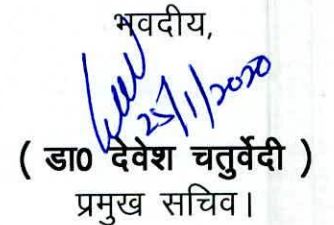 भवदीय,
25/1/2020
( डा0 देवेश चतुर्वेदी )
प्रमुख सचिव।